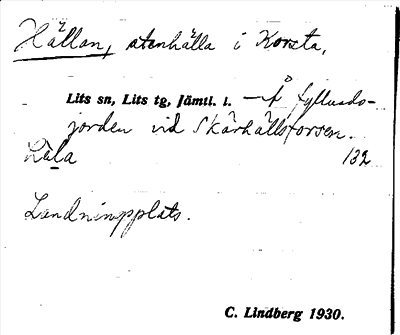 Hällan, stenhälla i Korsta,
Lits sn, Lits tg, Jämtl. l. — Å fyllnads-
jorden vid Skärhällsforsen.
132
Landningplats.
C. Lindberg 1930.